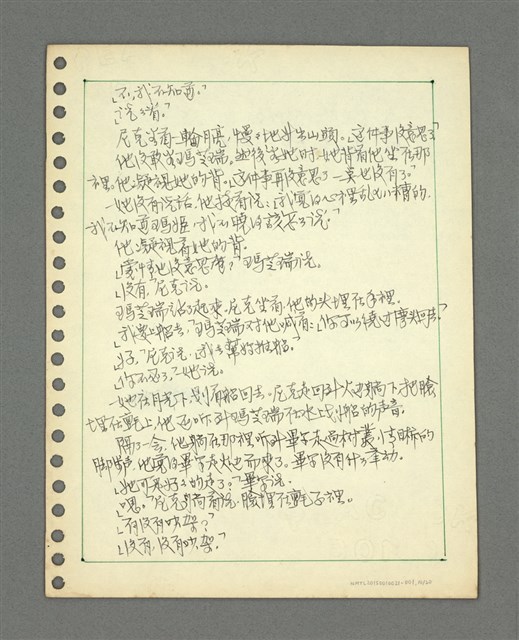 「不，我不知道。」
「說說看。」
尼克坐著一輪月亮，慢慢地升出山頭。「這件事沒意思了」
他沒敢望瑪芝瑞。然後望她時，她背著他坐在那
裡。他凝視她的背。「這件事再沒意思了。一點也沒有了。」
她沒有說話。他接着說：「我覺得心裡亂七八糟的。
我不知道，瑪姬，我不曉得該怎麼說。」
他凝視着她的背。
「愛情也沒意思嗎？」瑪芝瑞說。
「沒有。」尼克說。
瑪芝瑞站了起來。尼克坐着，他的头埋在手裡。
「我要上船去，」瑪芝瑞对他喊着：「你可以繞过岸走回去。」
「好。」尼克說，「我去幫你推船。」
「你不必了，」她說。
她在月光下划着船回去。尼克走回到火边躺下，把臉
埋在氈上，他还听到瑪芝瑞在水上划船的声音。
隔了一会，他躺在那裡听到畢爾走過樹叢小
脚步声，他覺得畢爾走火边而來了。畢爾沒有什么举动。
「她可是好好的走了？」畢爾說。
「嗯。」尼克躺着說，臉埋在氈子裡。
「有沒有吵架？」
「沒有，沒有吵架。」